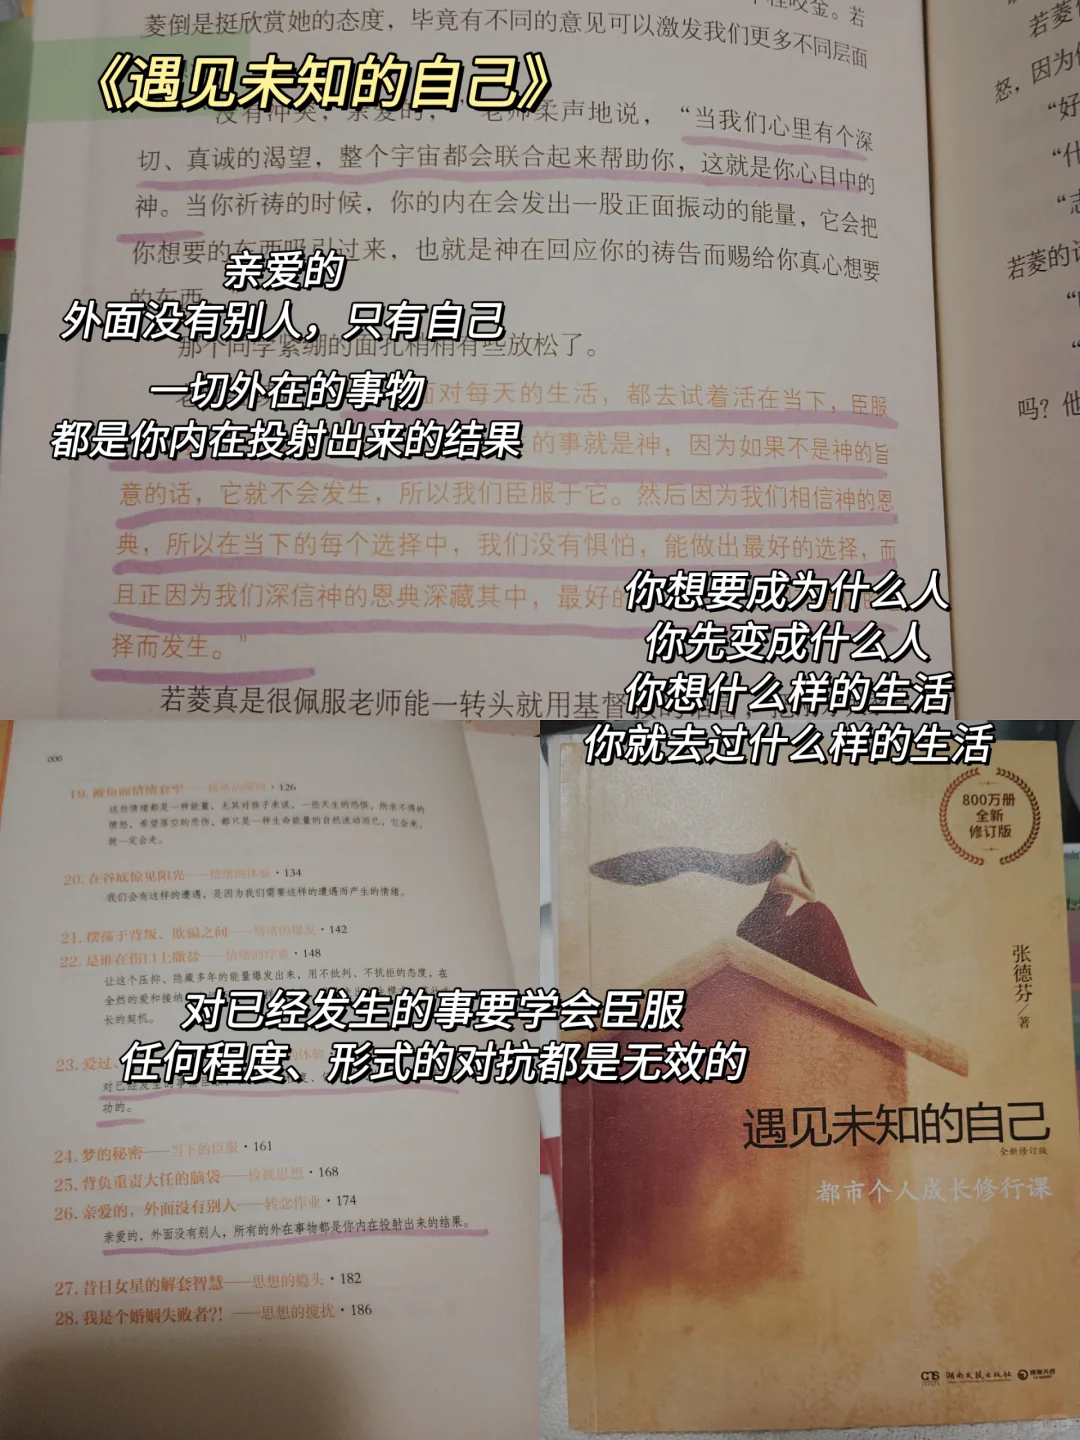 菱倒是挺欣赏她的态度，毕竟有不同的意见可以激发我们更多不同层面
程咬金。若
《遇见未知的自己》
没有冲突，亲爱的，”老师柔声地说，“当我们心里有个深
切、真诚的渴望，整个宇宙都会联合起来帮助你，这就是你心目中的
神。当你祈祷的时候，你的内在会发出一股正面振动的能量，它会把
你想要的东西吸引过来，也就是神在回应你的祷告而赐给你真心想要
的东西
亲爱的
外面没有别人，只有自己
那个同学紧绷的面孔稍稍有些放松了。
一切外在的事物
都是你内在投射出来的结果
面对每天的生活，都去试着活在当下，臣服
的事就是神，因为如果不是神的旨
意的话，它就不会发生，所以我们臣服于它。然后因为我们相信神的恩
典，所以在当下的每个选择中，我们没有惧怕，能做出最好的选择，而
且正因为我们深信神的恩典深藏其中，最好的
择而发生。”
若菱真是很佩服老师能一转头就用基督教的语言，
你想要成为什么人
你先变成什么人
你想什么样的生活
你就去过什么样的生活
若菱
怒，因为
“好
“什
“志
若菱的
吗？他
006
19. 被负面情绪套牢——情绪的障碍·126
这些情绪都是一种能量，尤其对孩子来说，一些天生的恐惧、所求不得的
愤怒、希望落空的悲伤，都只是一种生命能量的自然流动而已，它会来，
就一定会走。
20. 在谷底惊见阳光——情绪的体验·134
我们会有这样的遭遇，是因为我们需要这样的遭遇而产生的情绪。
21. 摆荡于背叛、欺骗之间——情绪的爆发·142
22. 是谁在伤口上撒盐——情绪的疗愈·148
让这个压抑、隐藏多年的能量爆发出来，用不批判、不抗拒的态度，在
全然的爱和接纳
长的契机。
对已经发生的事要学会臣服
任何程度、形式的对抗都是无效的
23. 爱过、
的体验
对已经发生的事
功的。
24. 梦的秘密——当下的臣服·161
25. 背负重责大任的脑袋——检视思想·168
26. 亲爱的，外面没有别人——转念作业·174
亲爱的，外面没有别人，所有的外在事物都是你内在投射出来的结果。
27. 昔日女星的解套智慧——思想的瘾头·182
28. 我是个婚姻失败者?! ——思想的搅扰·186
800万册
全新
修订版
张德芬／著
遇见未知的自己
全新修订版
都市个人成长修行课
湖南文艺出版社
博集天卷